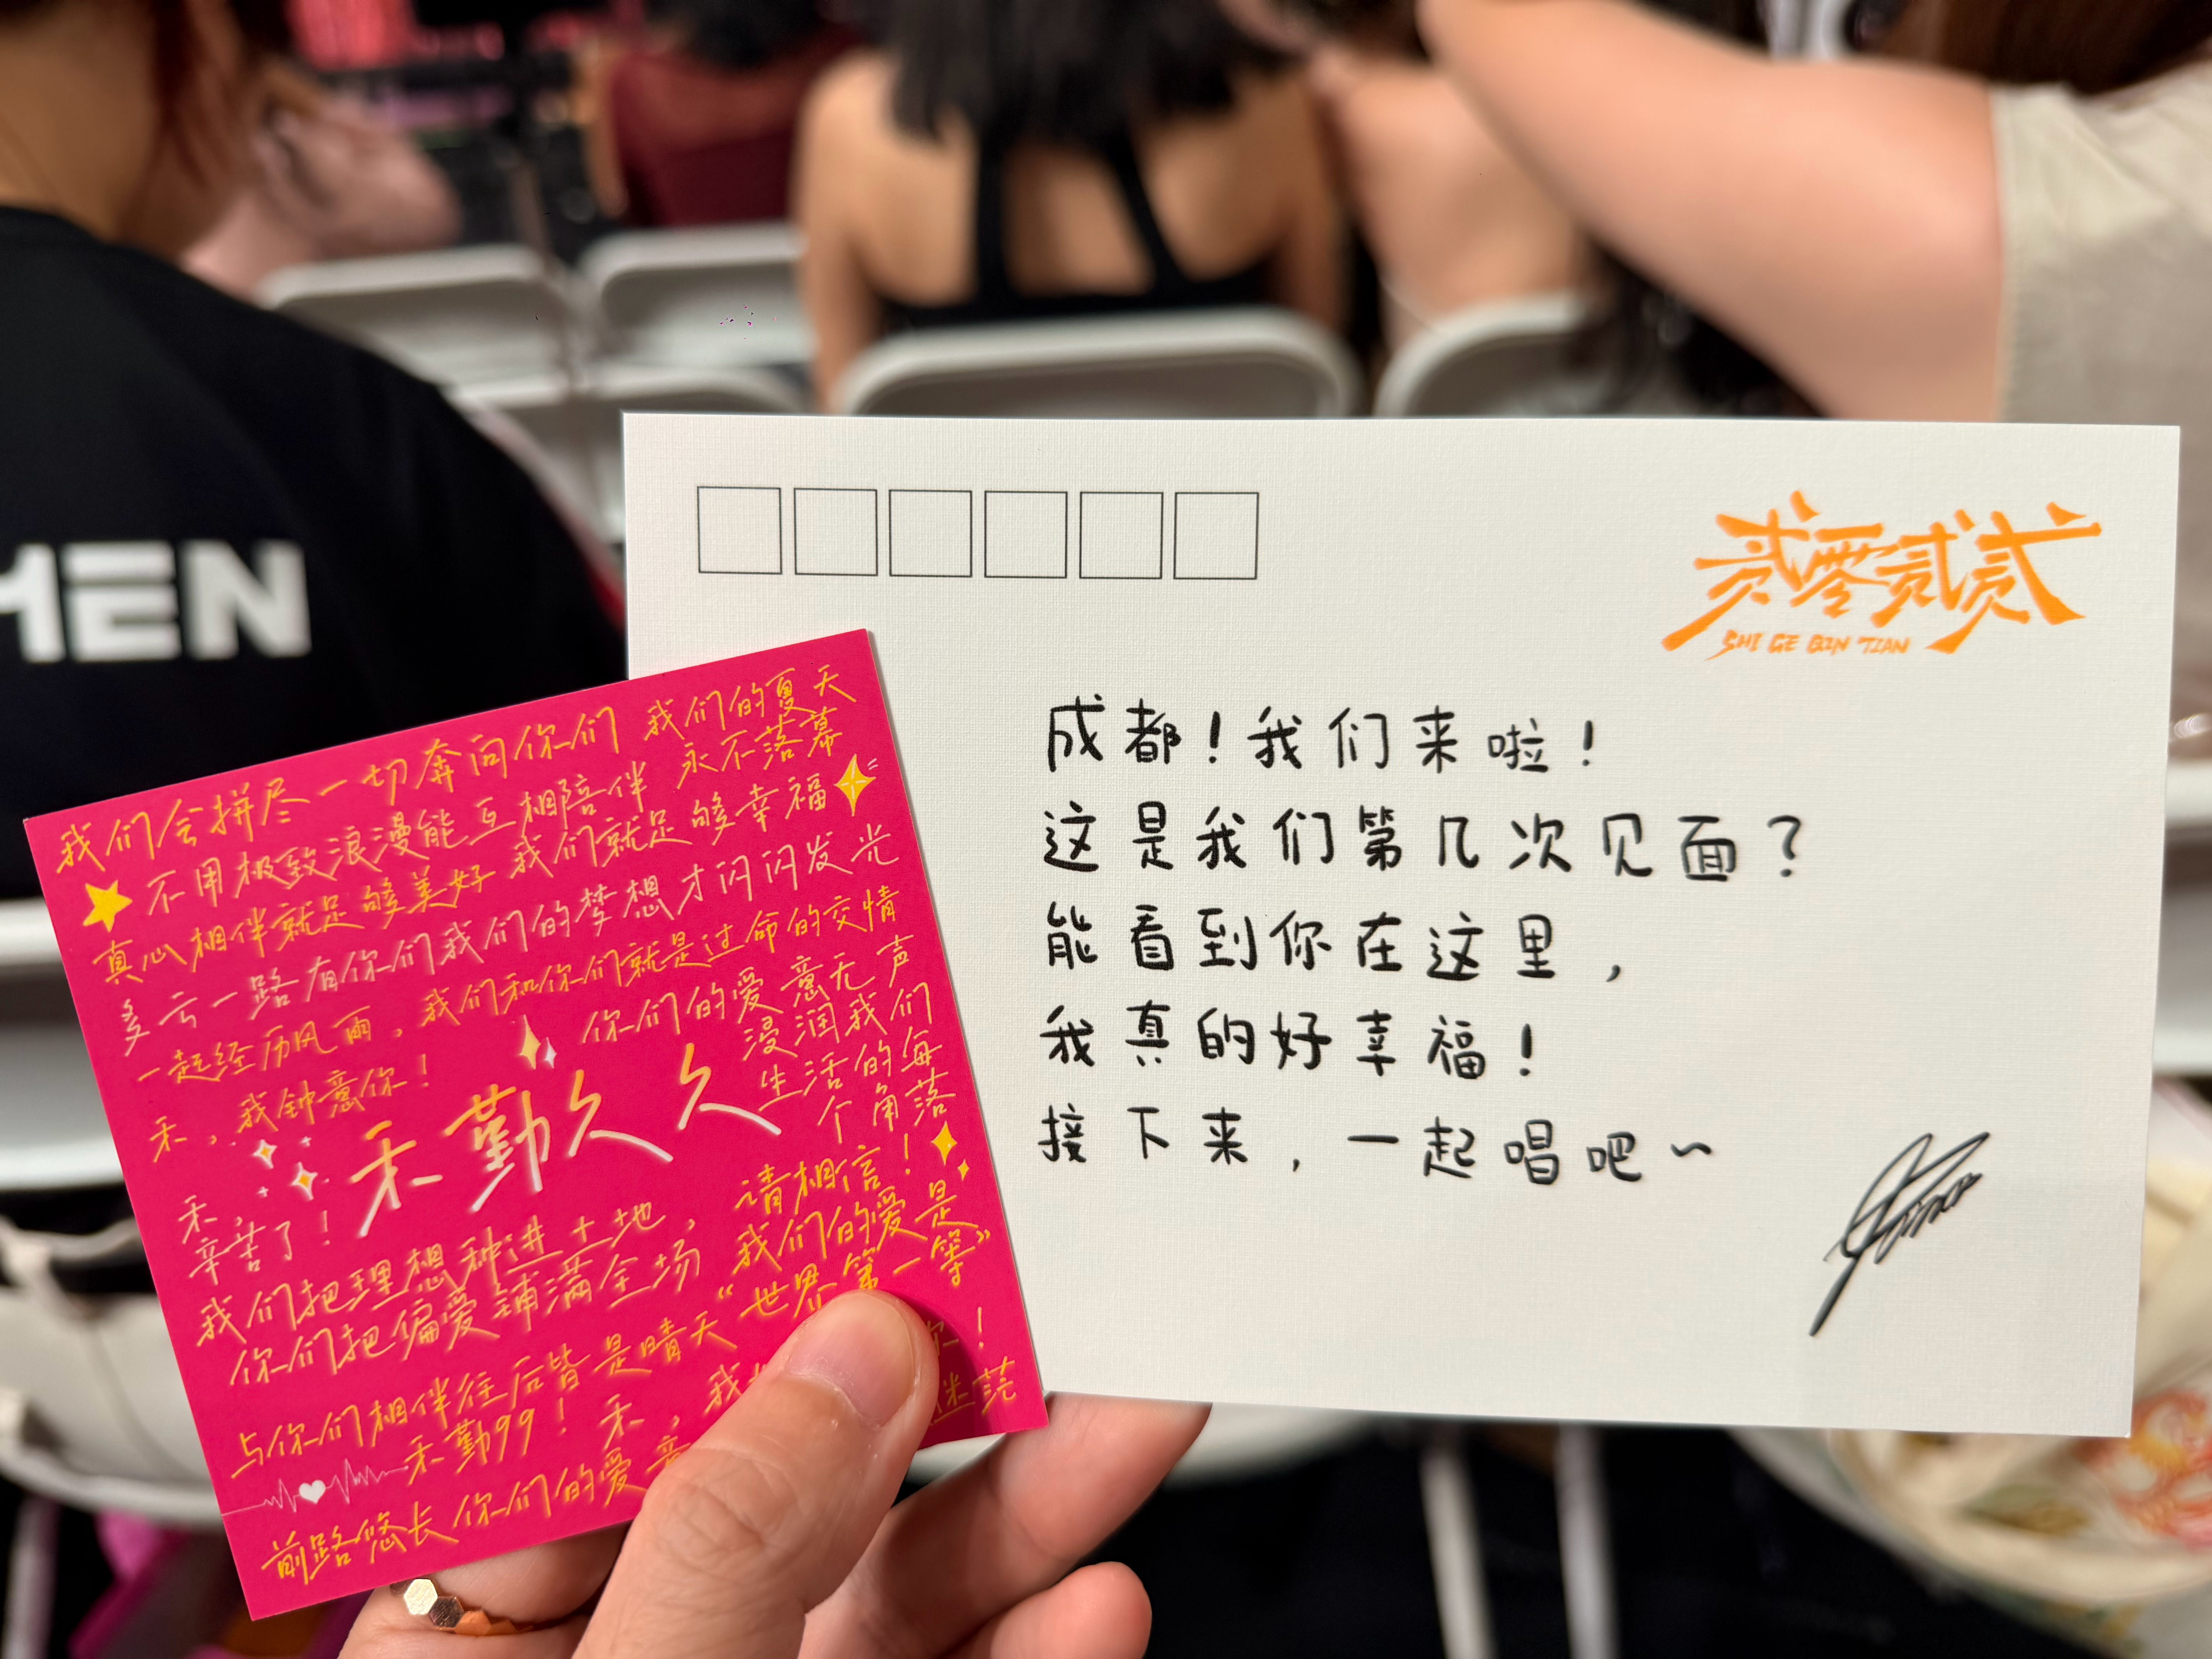 HEN
贰零贰贰
SHI GE QIN TIAN
成都！我们来啦！
这是我们第几次见面？
能看到你在这里，
我真的好幸福！
接下来，一起唱吧～
我们会拼尽一切奔向你们
我们的夏天
永不落幕
不用极致浪漫能互相陪伴
真心相伴就足够美好 我们就足够幸福
多亏一路有你们我们的梦想才闪闪发光
一起经历风雨，我们和你们就是过命的交情
禾，我钟意你！
你们的爱意无声
浸润我们
生活的每
个角落
禾勤久久
禾，
辛苦了！
我们把理想种进土地，
你们把偏爱铺满全场
请相信！
“我们的爱是
世界第一等”
与你们相伴往后皆是晴天
禾勤99！禾，我
你！
前路悠长你们的爱意
迷茫